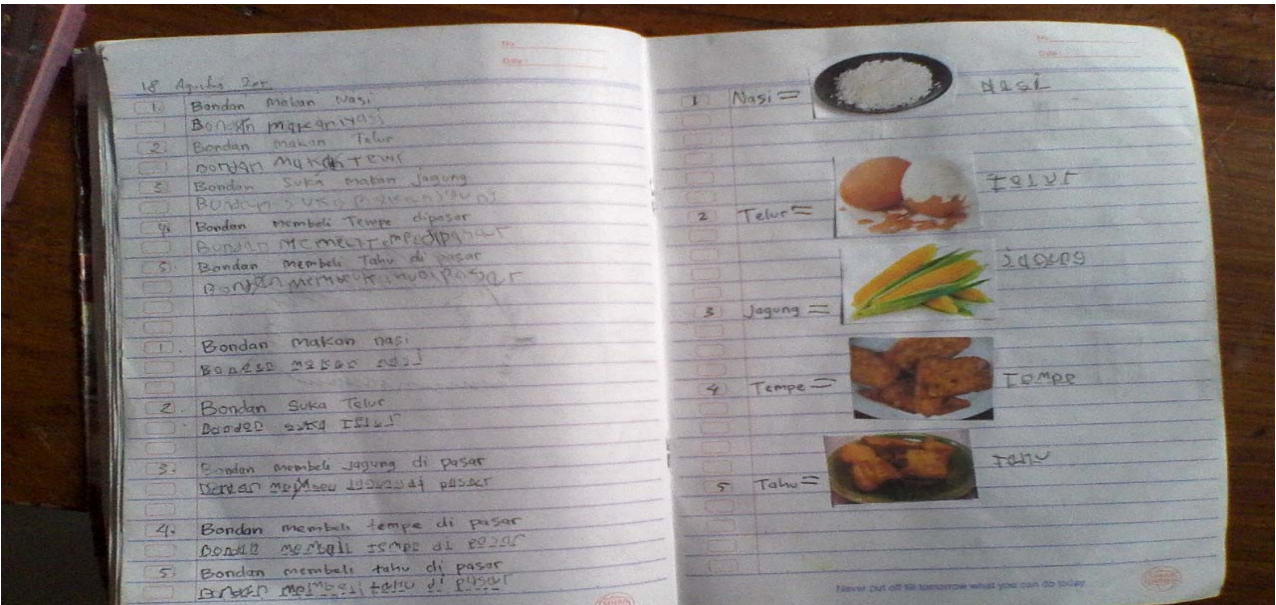 No.
Date:
18 Agustus
1. Bondan makan Nasi
Bondan makan nasi
2. Bondan makan Telur
Bondan makan
3 Bondan Suka makan Jagung
Bondan suka makan
4. Bondan membeli Tempe dipasar
Bondan
5. Bondan membeli Tahu di pasar
Bondan pasar
1. Bondan makan nasi
Bondan makan nasi
2. Bondan Suka Telur
Bondan suka Telur
3. Bondan membeli Jagung di pasar
Bondan di pasar
4. Bondan membeli tempe di pasar
Bondan membeli tempe di pasar
5. Bondan membeli tahu di pasar
Bondan tahu di pasar
No.
Date:
1 Nasi = Nasi
2 Telur = Telur
3 Jagung = Jagung
4 Tempe = Tempe
5 Tahu = Tahu
Never put off till tomorrow what you can do today